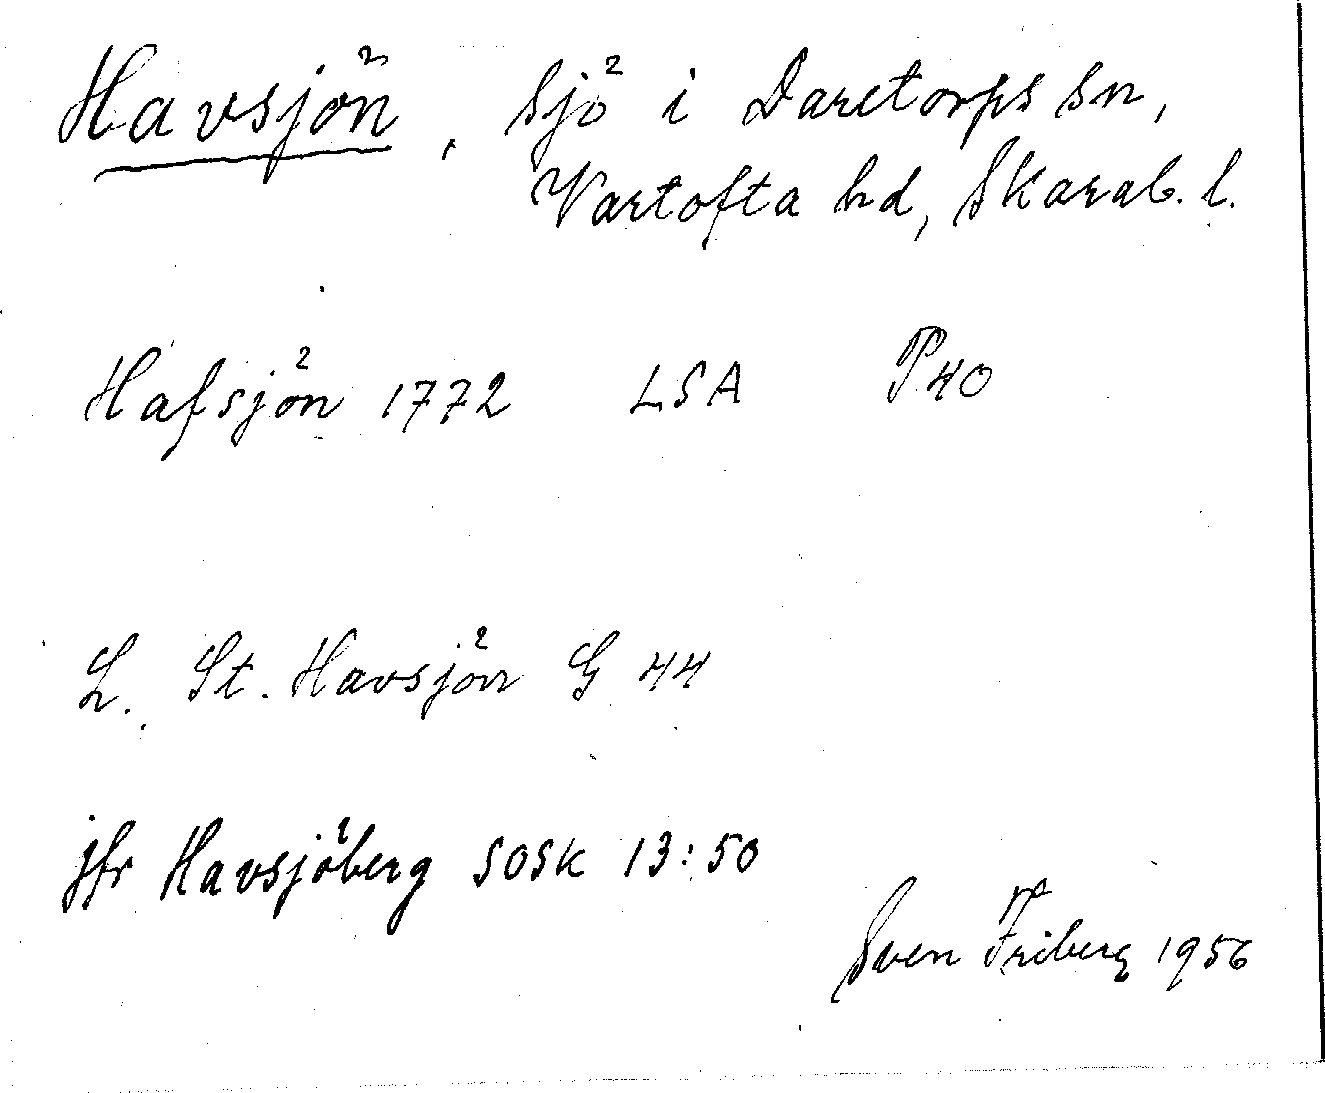 Havsjön, sjö i Daretorps sn,
Vartofta hd, Skarab. l.
Hafsjön 1772 LSA P40
L. St. Havsjön G 44
jfr Havsjöberg SOSK 13:50
Sven Friberg 1956